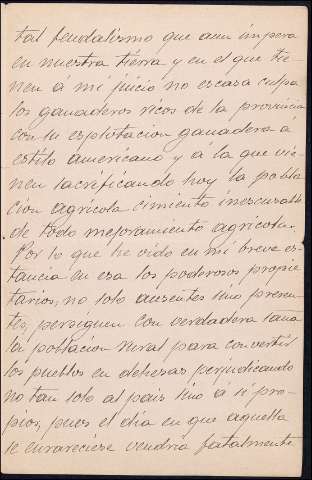 tal feudalismo que aun impera
en nuestra tierra y en el que tie-
nen á mi juicio no escasa culpa
los ganaderos ricos de la provincia
con su explotacion ganadera a
estilo americano y á la que vie-
nen sacrificando hoy la pobla
cion agricola cimiento inexcusable
de todo mejoramiento agricola.
Por lo que he oido en mi breve es-
tancia en esa los poderosos propie
tarios, no solo ausentes sino presen-
tes, persiguen con verdadera sana
la poblacion rural para convertir
los pueblos en dehesas perjudicando
no tan solo al pais sino á si pro-
pios, pues el dia en que aquella
se enrareciese vendria fatalmente